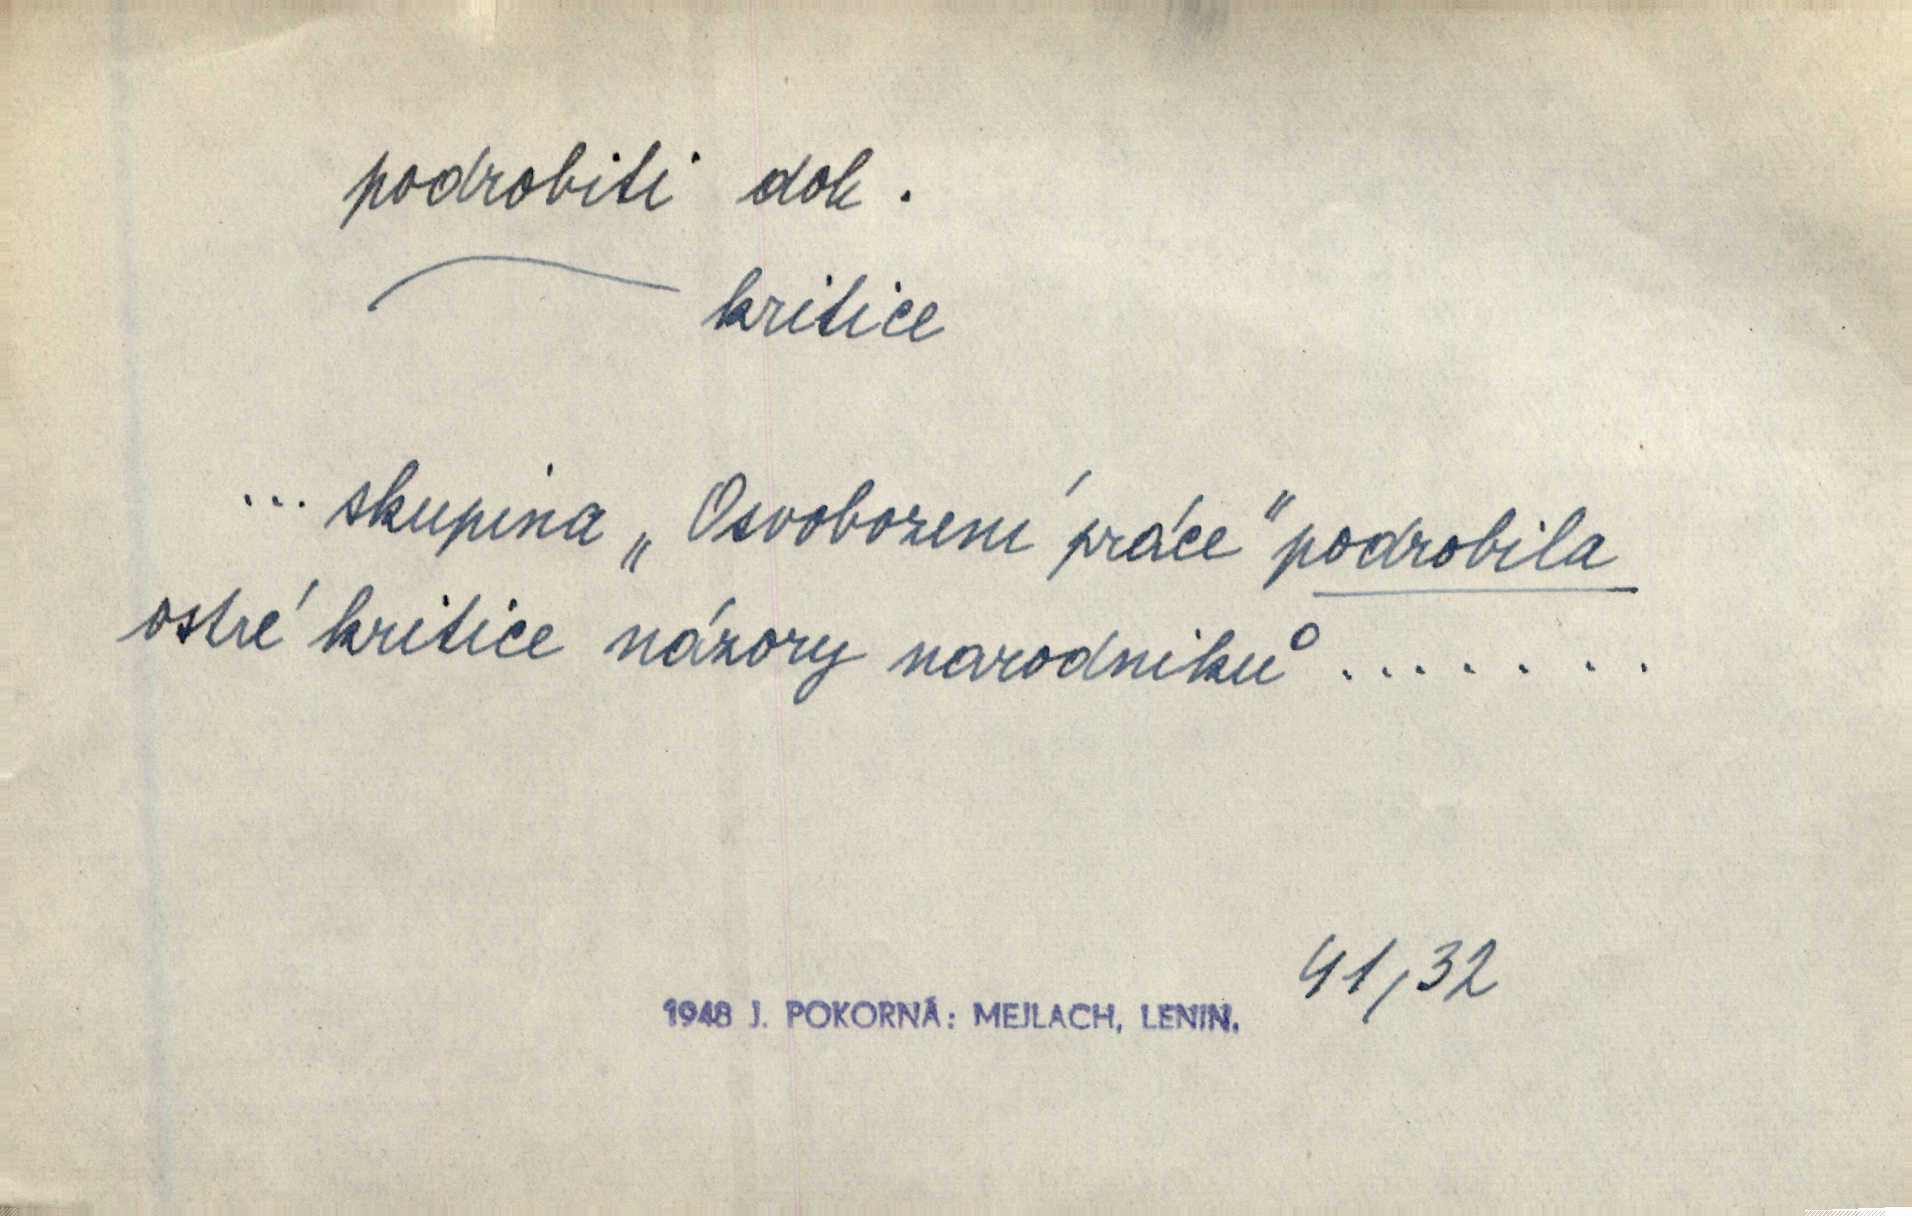 podrobiti dok.
kritice
... skupina „Osvobození práce" podrobila
ostré kritice názory narodniků ........
41,32
1948 J. POKORNÁ: MEJLACH, LENIN.